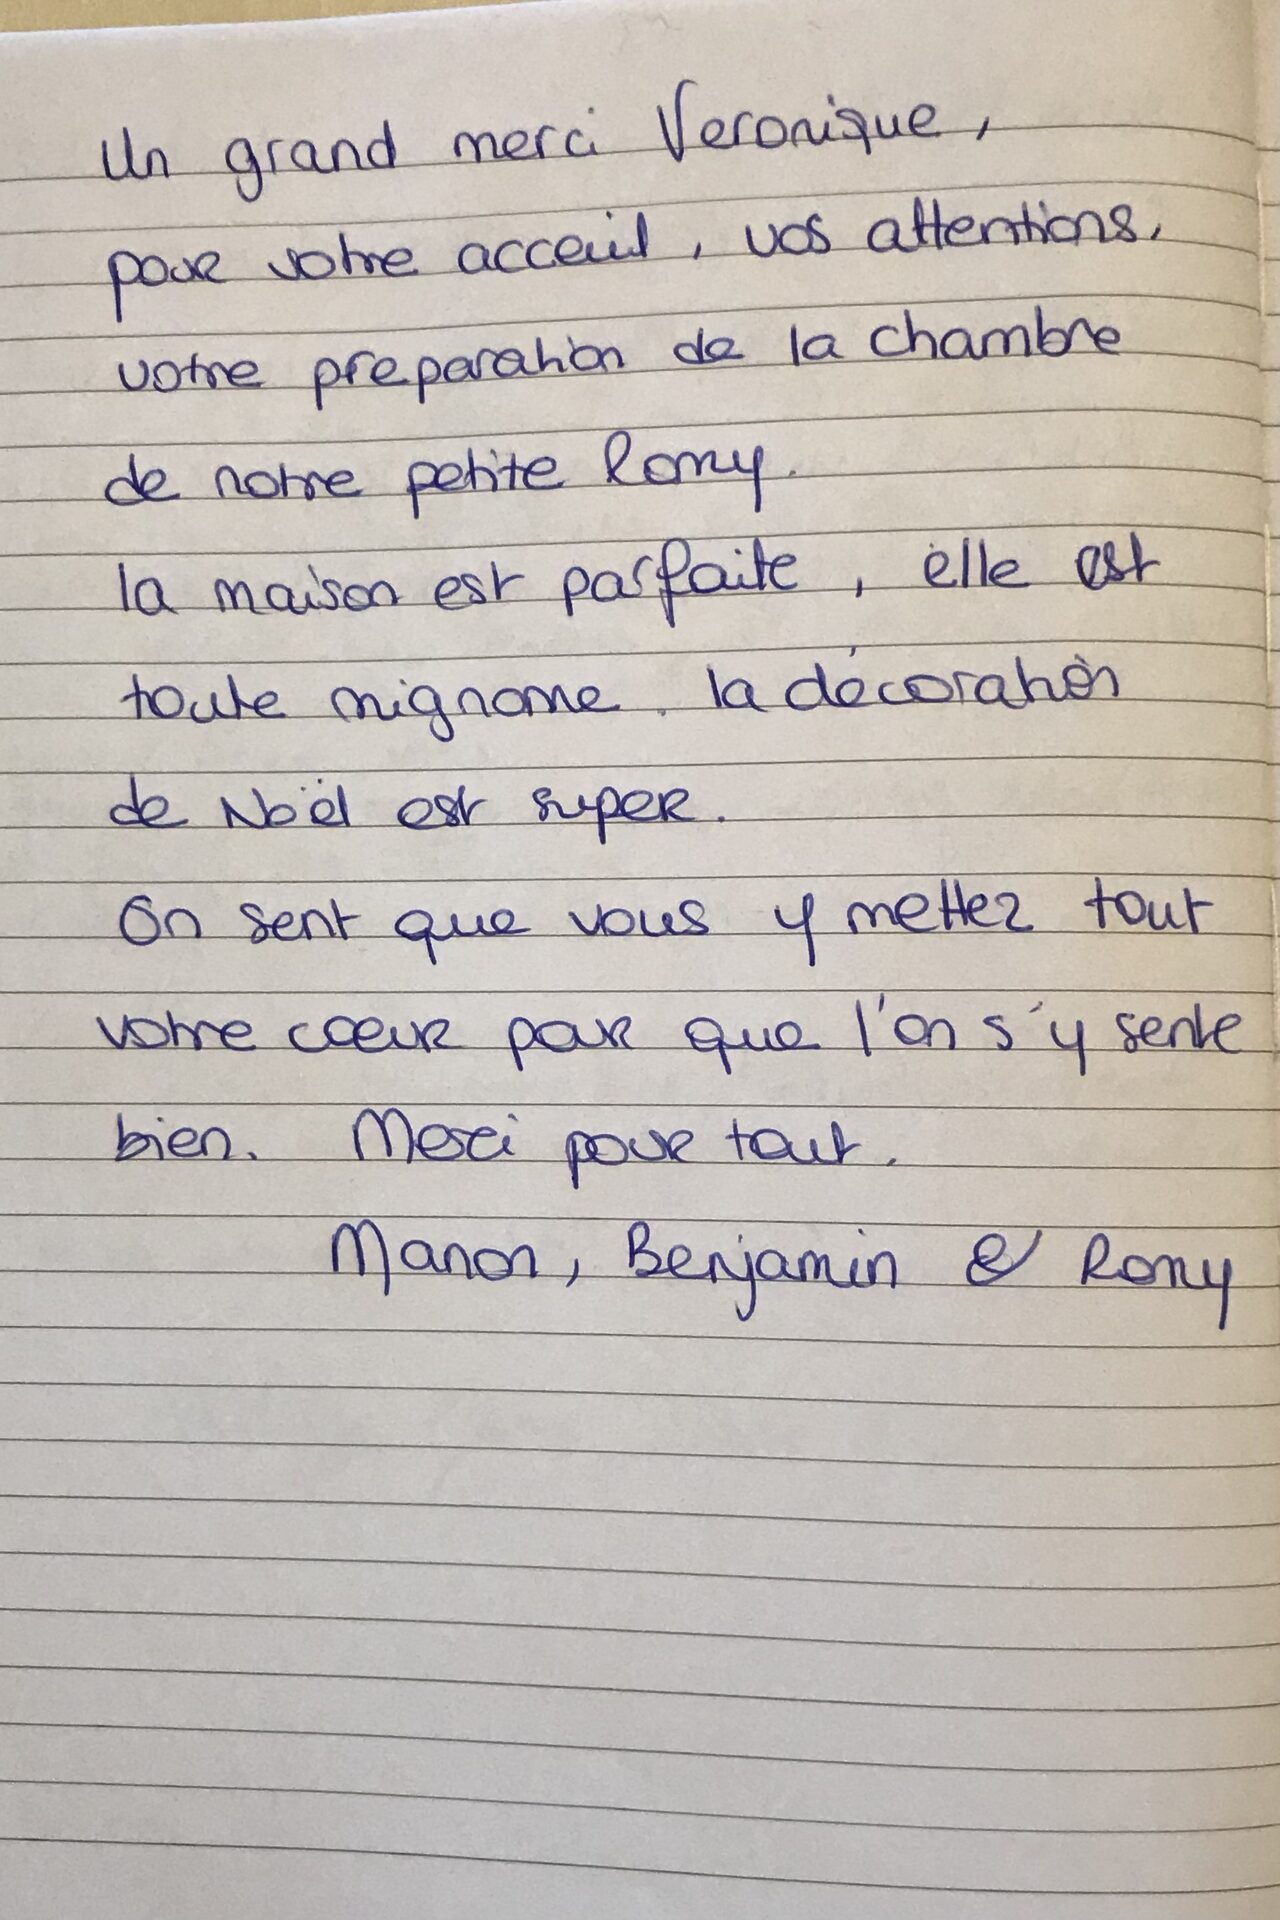 Un grand merci Veronique,
pour votre acceuil, vos attentions,
votre preparation de la chambre
de notre petite Romy.
la maison est parfaite, elle est
toute mignonne. la décoration
de Noël est super.
On sent que vous y mettez tout
votre coeur pour que l'on s'y sente
bien. Merci pour tout.
Manon, Benjamin & Romy